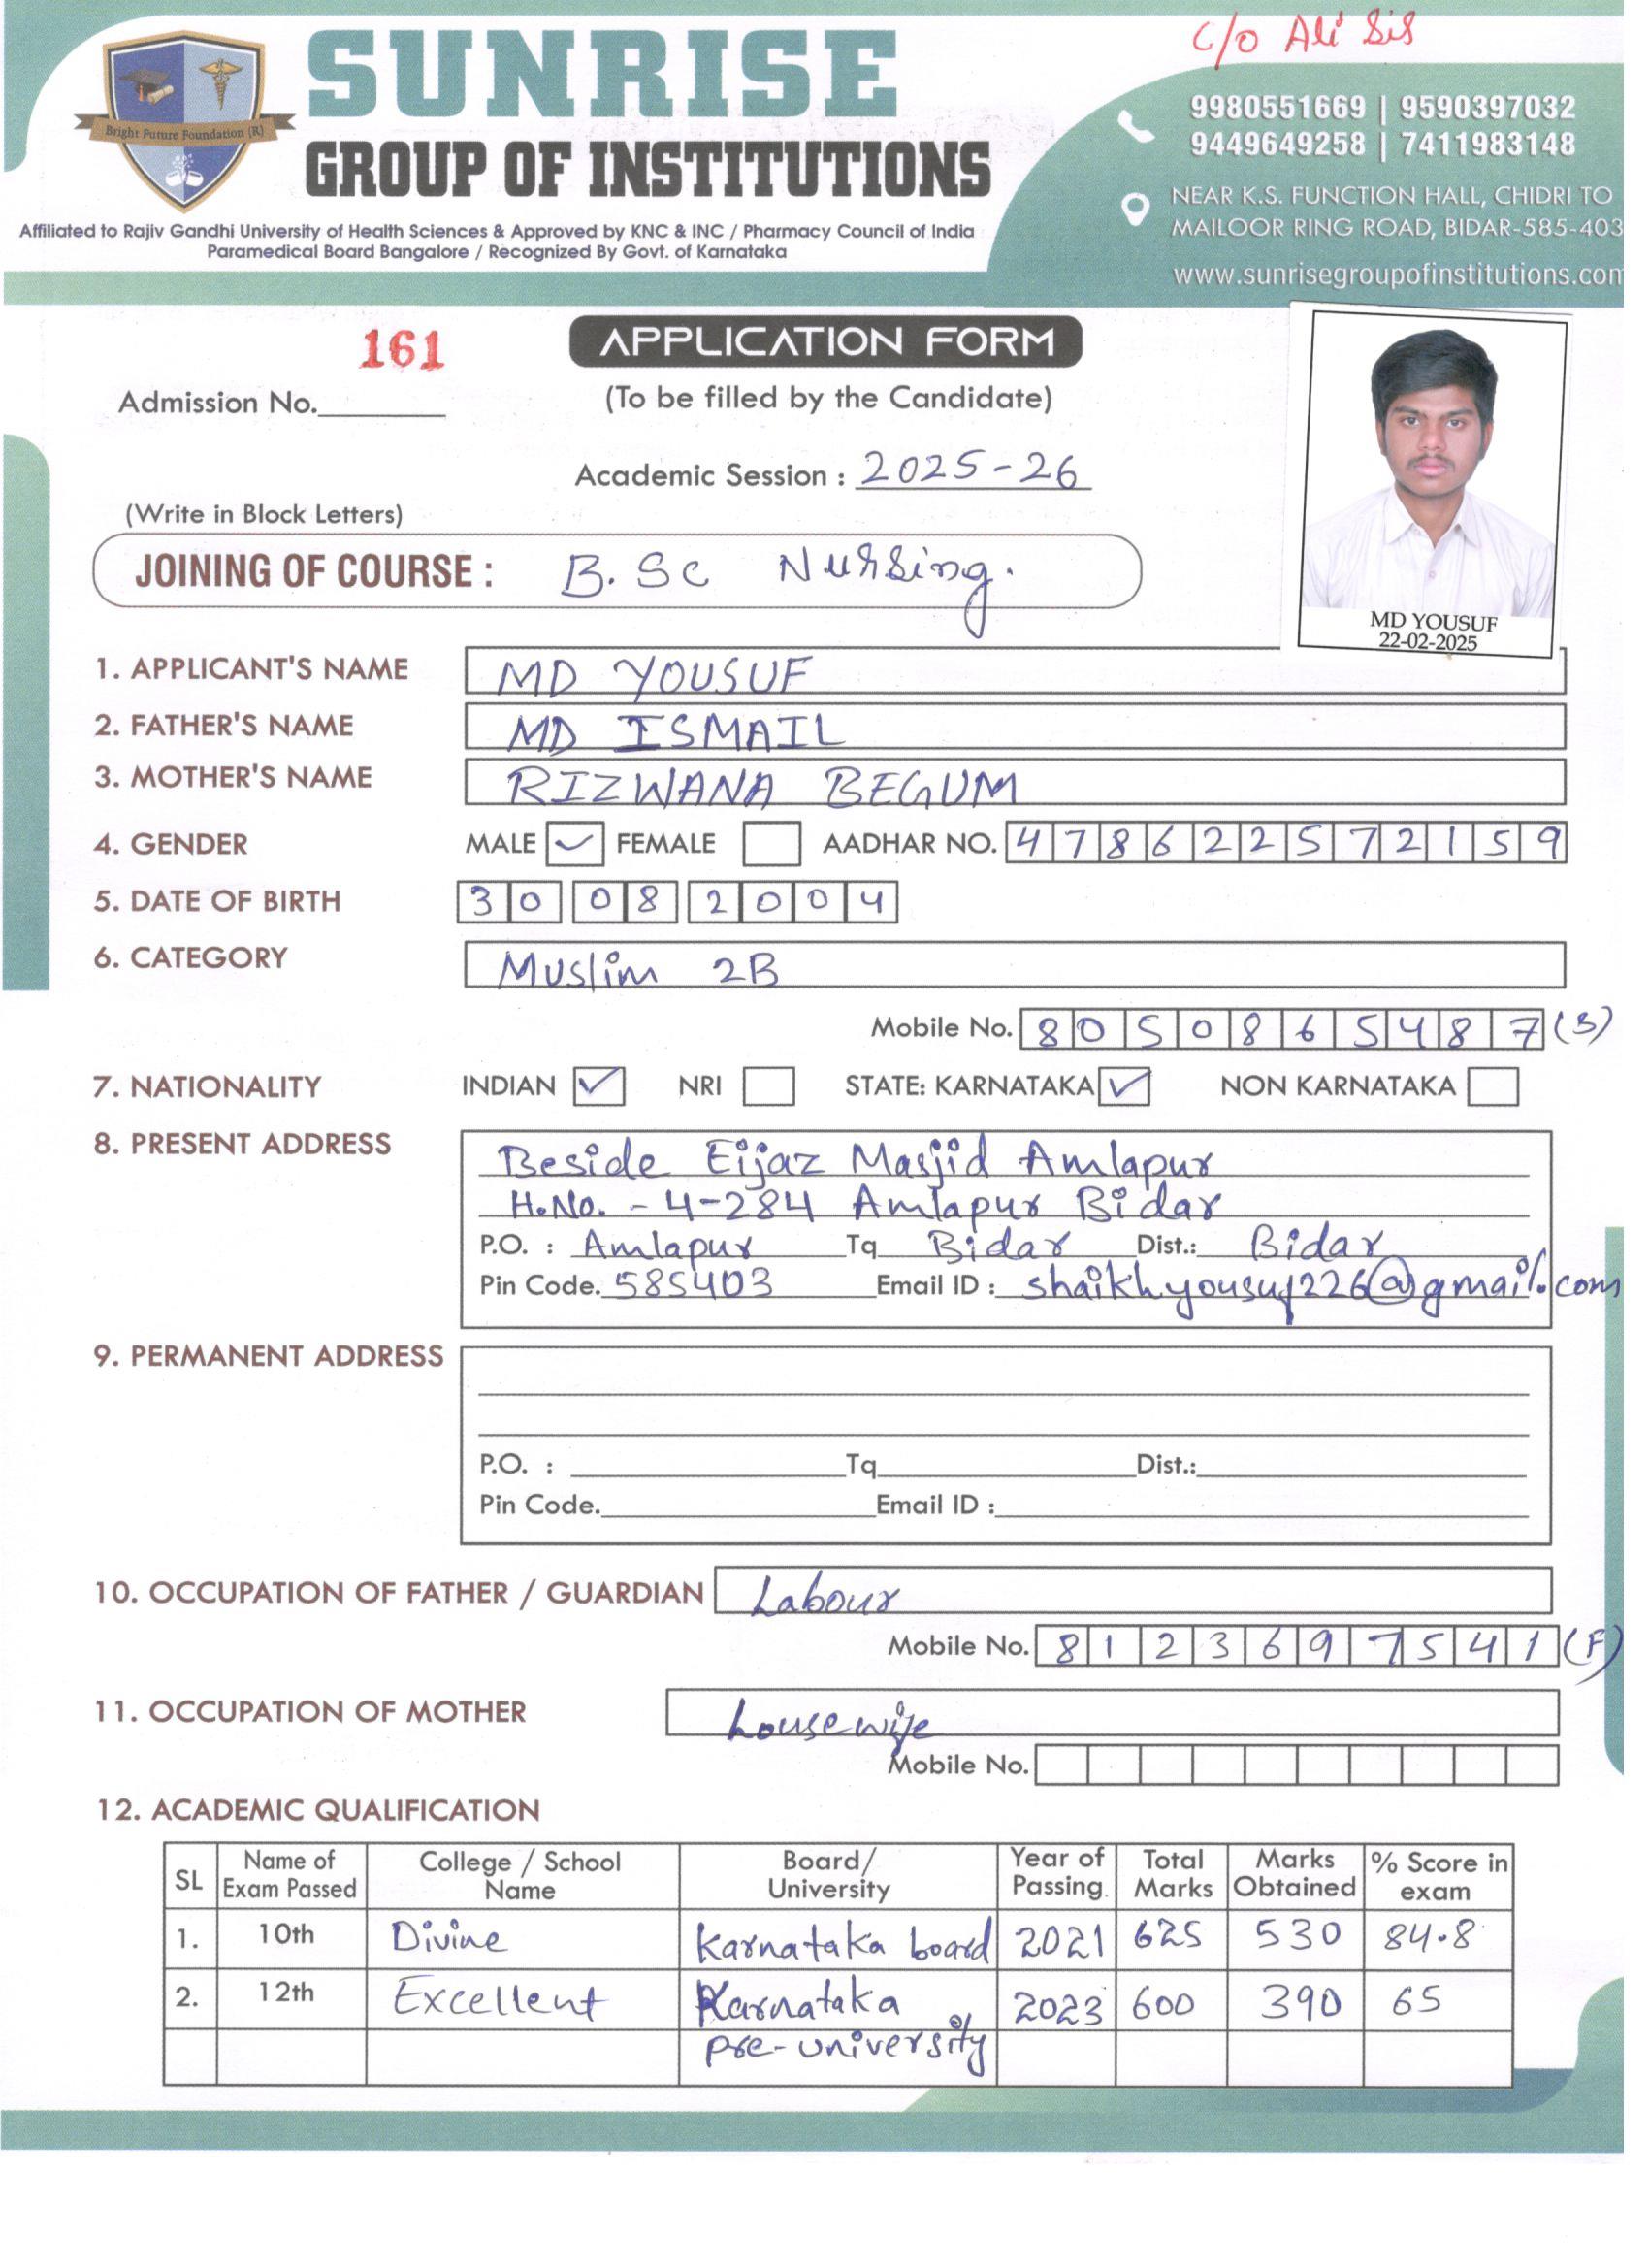 c/o Ali Sis
SUNRISE
GROUP OF INSTITUTIONS
Bright Future Foundation (R)
Affiliated to Rajiv Gandhi University of Health Sciences & Approved by KNC & INC / Pharmacy Council of India
Paramedical Board Bangalore / Recognized By Govt. of Karnataka
9980551669 | 9590397032
9449649258 | 7411983148
NEAR K.S. FUNCTION HALL, CHIDRI TO
MAILOOR RING ROAD, BIDAR-585-403
www.sunrisegroupofinstitutions.com
161
APPLICATION FORM
Admission No.
(To be filled by the Candidate)
Academic Session : 2025-26
(Write in Block Letters)
JOINING OF COURSE : B. Sc Nursing.
MD YOUSUF
22-02-2025
1. APPLICANT'S NAME MD YOUSUF
2. FATHER'S NAME MD ISMAIL
3. MOTHER'S NAME RIZWANA BEGUM
4. GENDER MALE ✓ FEMALE AADHAR NO. 478622572159
5. DATE OF BIRTH 30 08 2004
6. CATEGORY Muslim 2B
Mobile No. 8050865487 (S)
7. NATIONALITY INDIAN ✓ NRI STATE: KARNATAKA ✓ NON KARNATAKA
8. PRESENT ADDRESS Beside Eijaz Masjid Amlapur
H.No. - 4-284 Amlapur Bidar
P.O. : Amlapur Tq Bidar Dist.: Bidar
Pin Code. 585403 Email ID : shaikhyousuf226@gmail.com
9. PERMANENT ADDRESS
P.O. : Tq Dist.:
Pin Code. Email ID :
10. OCCUPATION OF FATHER / GUARDIAN Labour
Mobile No. 8123697541 (F)
11. OCCUPATION OF MOTHER housewife
Mobile No.
12. ACADEMIC QUALIFICATION
SL Name of Exam Passed College / School Name Board/ University Year of Passing. Total Marks Marks Obtained % Score in exam
1. 10th Divine Karnataka board 2021 625 530 84.8
2. 12th Excellent Karnataka 2023 600 390 65
pre-university